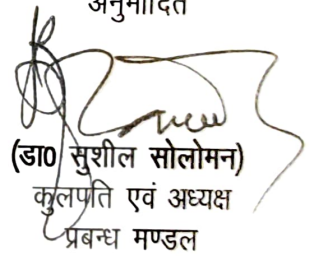 अनुमोदित
(डा0 सुशील सोलोमन)
कुलपति एवं अध्यक्ष
प्रबन्ध मण्डल